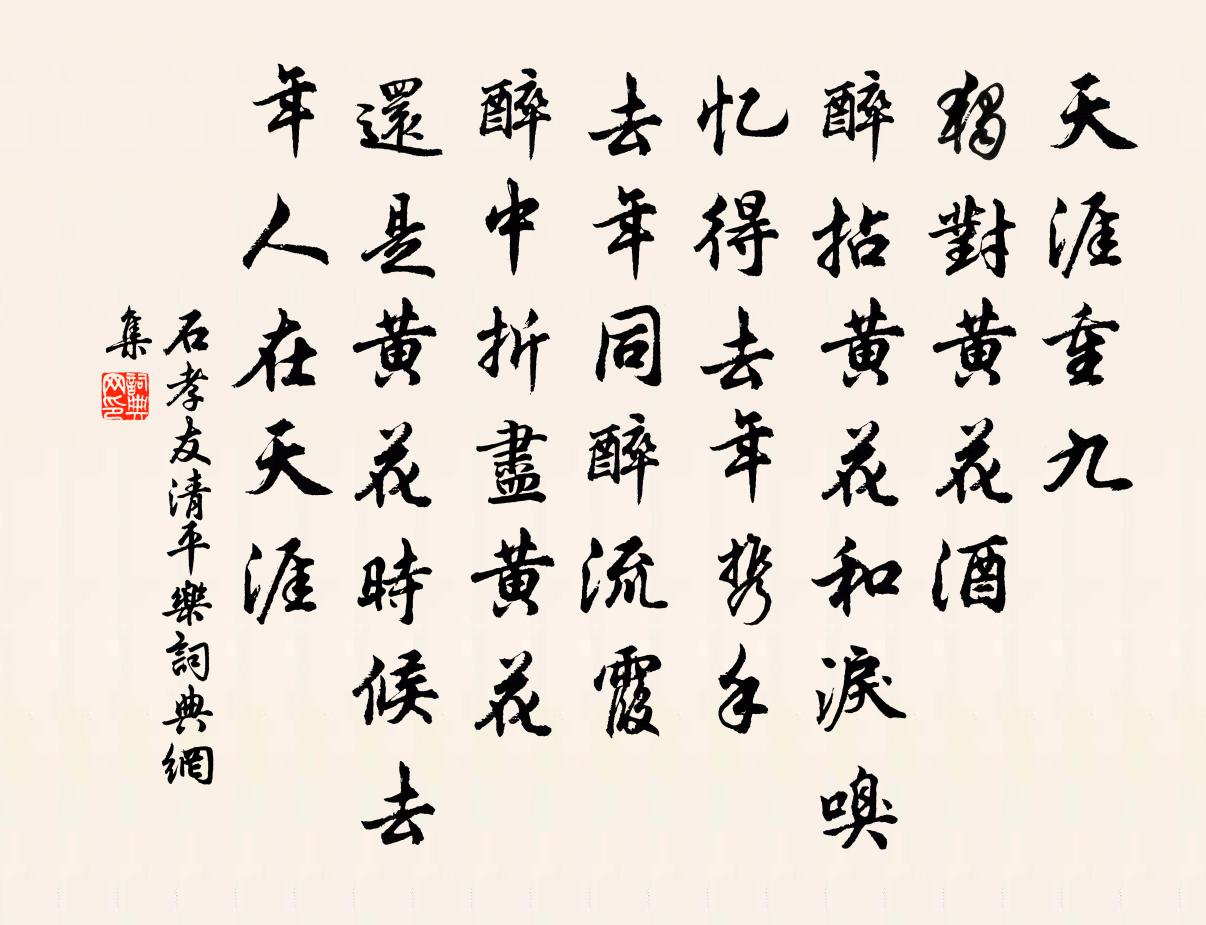 天涯重九
獨對黄花酒
醉拈黄花和淚嗅
忆得去年携手
去年同醉流霞
醉中折盡黄花
還是黄花時候去
年人在天涯
石孝友清平樂詞典網
集
詞典
网印